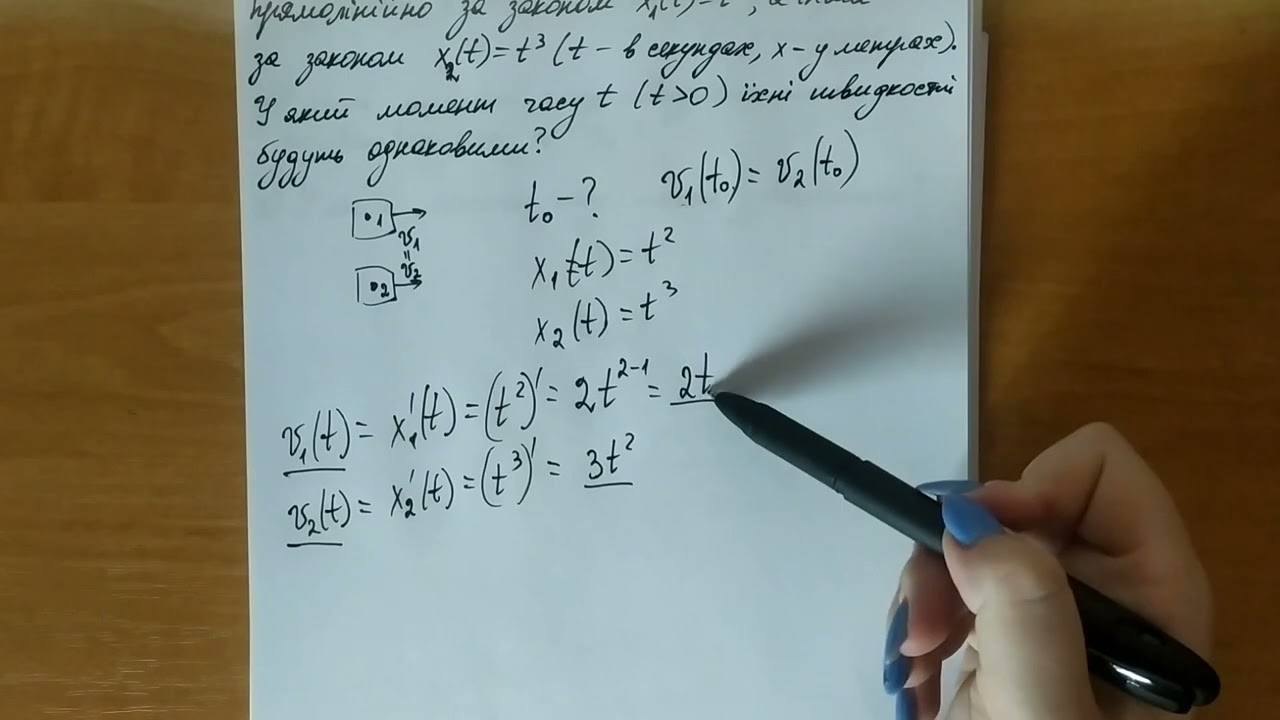 прямолінійно за законом x₁(t)=t²,
за законом x₂(t)=t³ (t – в секундах, x – у метрах).
У який момент часу t (t>0) їхні швидкості
будуть однаковими?
t₀ – ?
v₁(t₀) = v₂(t₀)
•1
v₁
=
v₂
•2
x₁(t) = t²
x₂(t) = t³
v₁(t) = x₁'(t) = (t²)' = 2t²⁻¹ = 2t
v₂(t) = x₂'(t) = (t³)' = 3t²